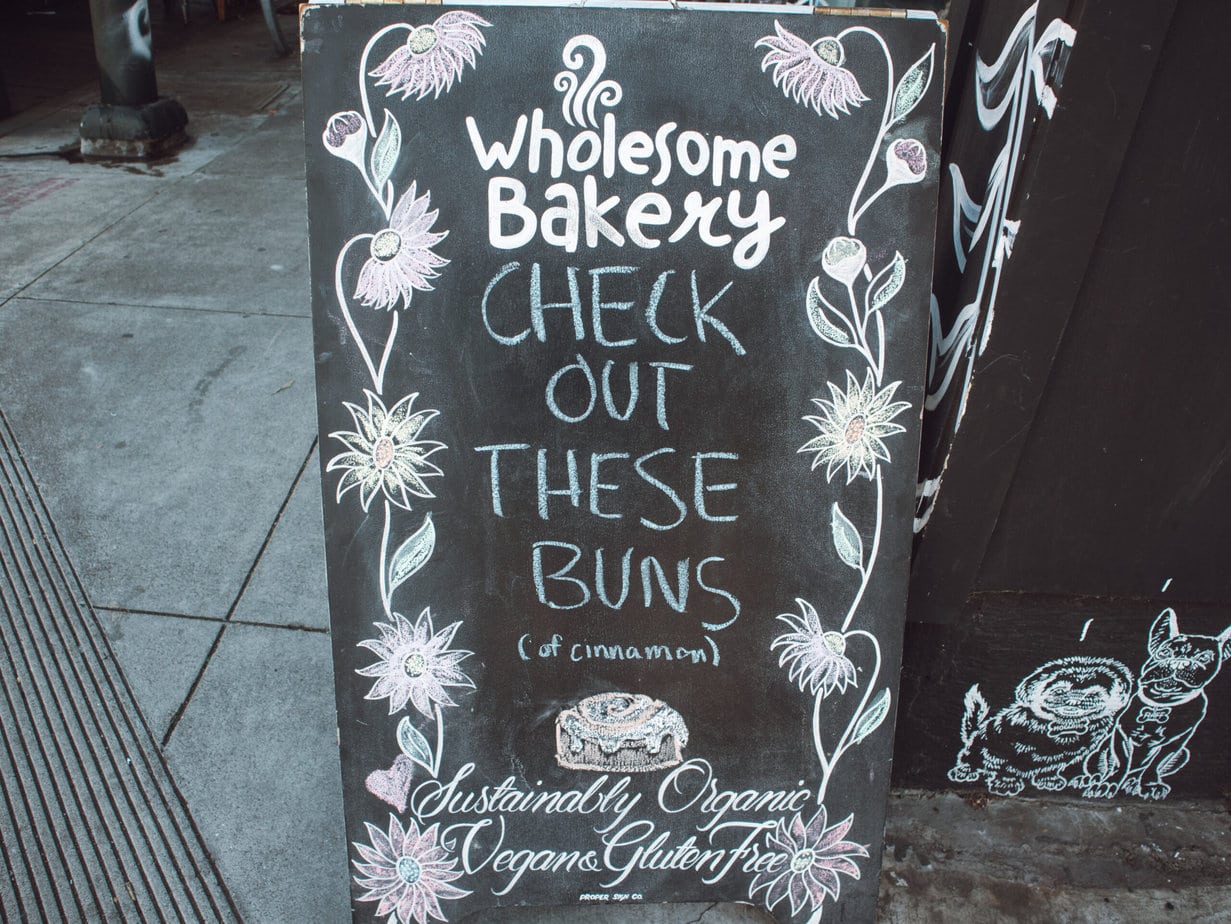 Wholesome
Bakery
CHECK
OUT
THESE
BUNS
(of cinnamon)
Sustainably Organic
Vegan & Gluten Free
PROPER SIGN CO.